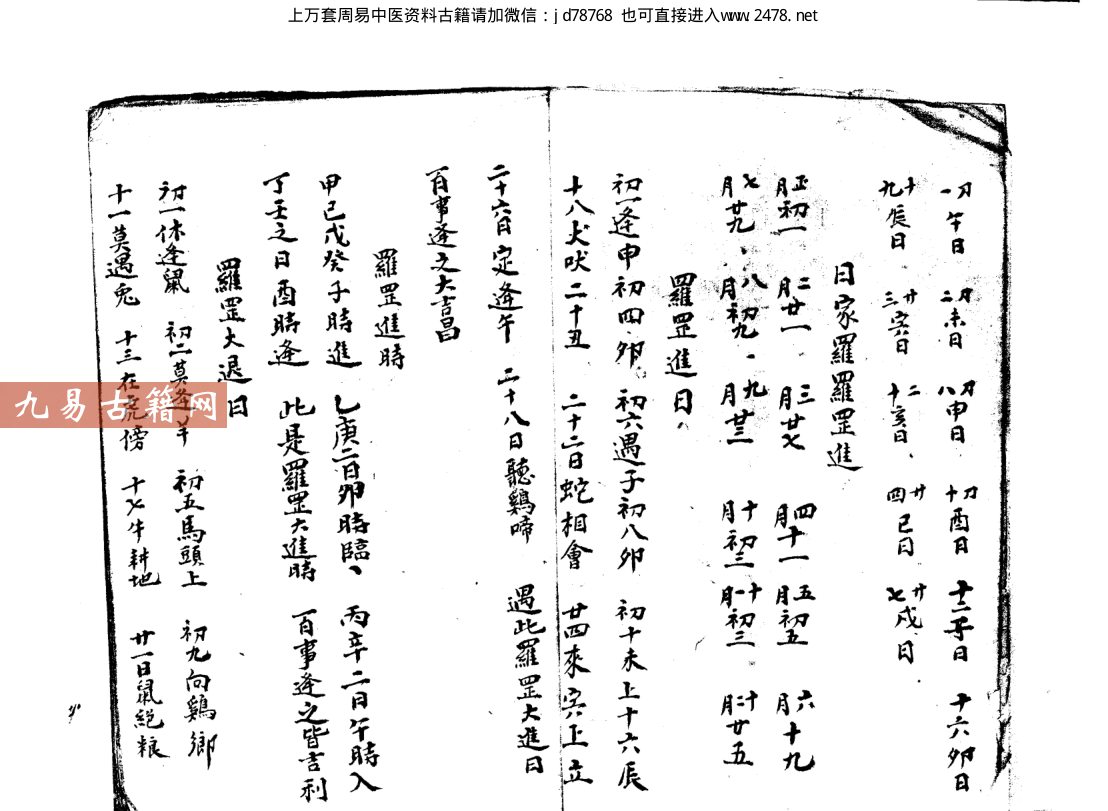 上万套周易中医资料古籍请加微信：jd78768 也可直接进入www.2478.net
初一午日 初二未日 初八申日 初十酉日 十二子日 十六卯日
十九辰日 廿三寅日 二十亥日、 廿四巳日 廿七戌日
日家羅羅罡進
正月初一 二月廿一 三月廿七 四月十一 五月初五 六月十九
七月廿九、 八月初九、 九月廿三 十月初三 十一月初三 十二月廿五
羅罡進日
初一逢申初四卯 初六遇子初八卯 初十未上十六辰
十八犬吠二十丑 二十二日蛇相會 廿四來寅上立
二十六日定逢午 二十八日聽鷄啼 遇此羅罡大進日
百事逢之大吉昌
羅罡進時
甲己戊癸子時進 乙庚二日卯時臨、 丙辛二日午時入
丁壬之日酉時逢 此是羅罡大進時 百事逢之皆吉利
羅罡大退日
初一休逢鼠 初二莫逢羊 初五馬頭上 初九向鷄鄉
十一莫遇兔 十三在虎傍 十七牛耕地 廿一日鼠絕粮
九易古籍网